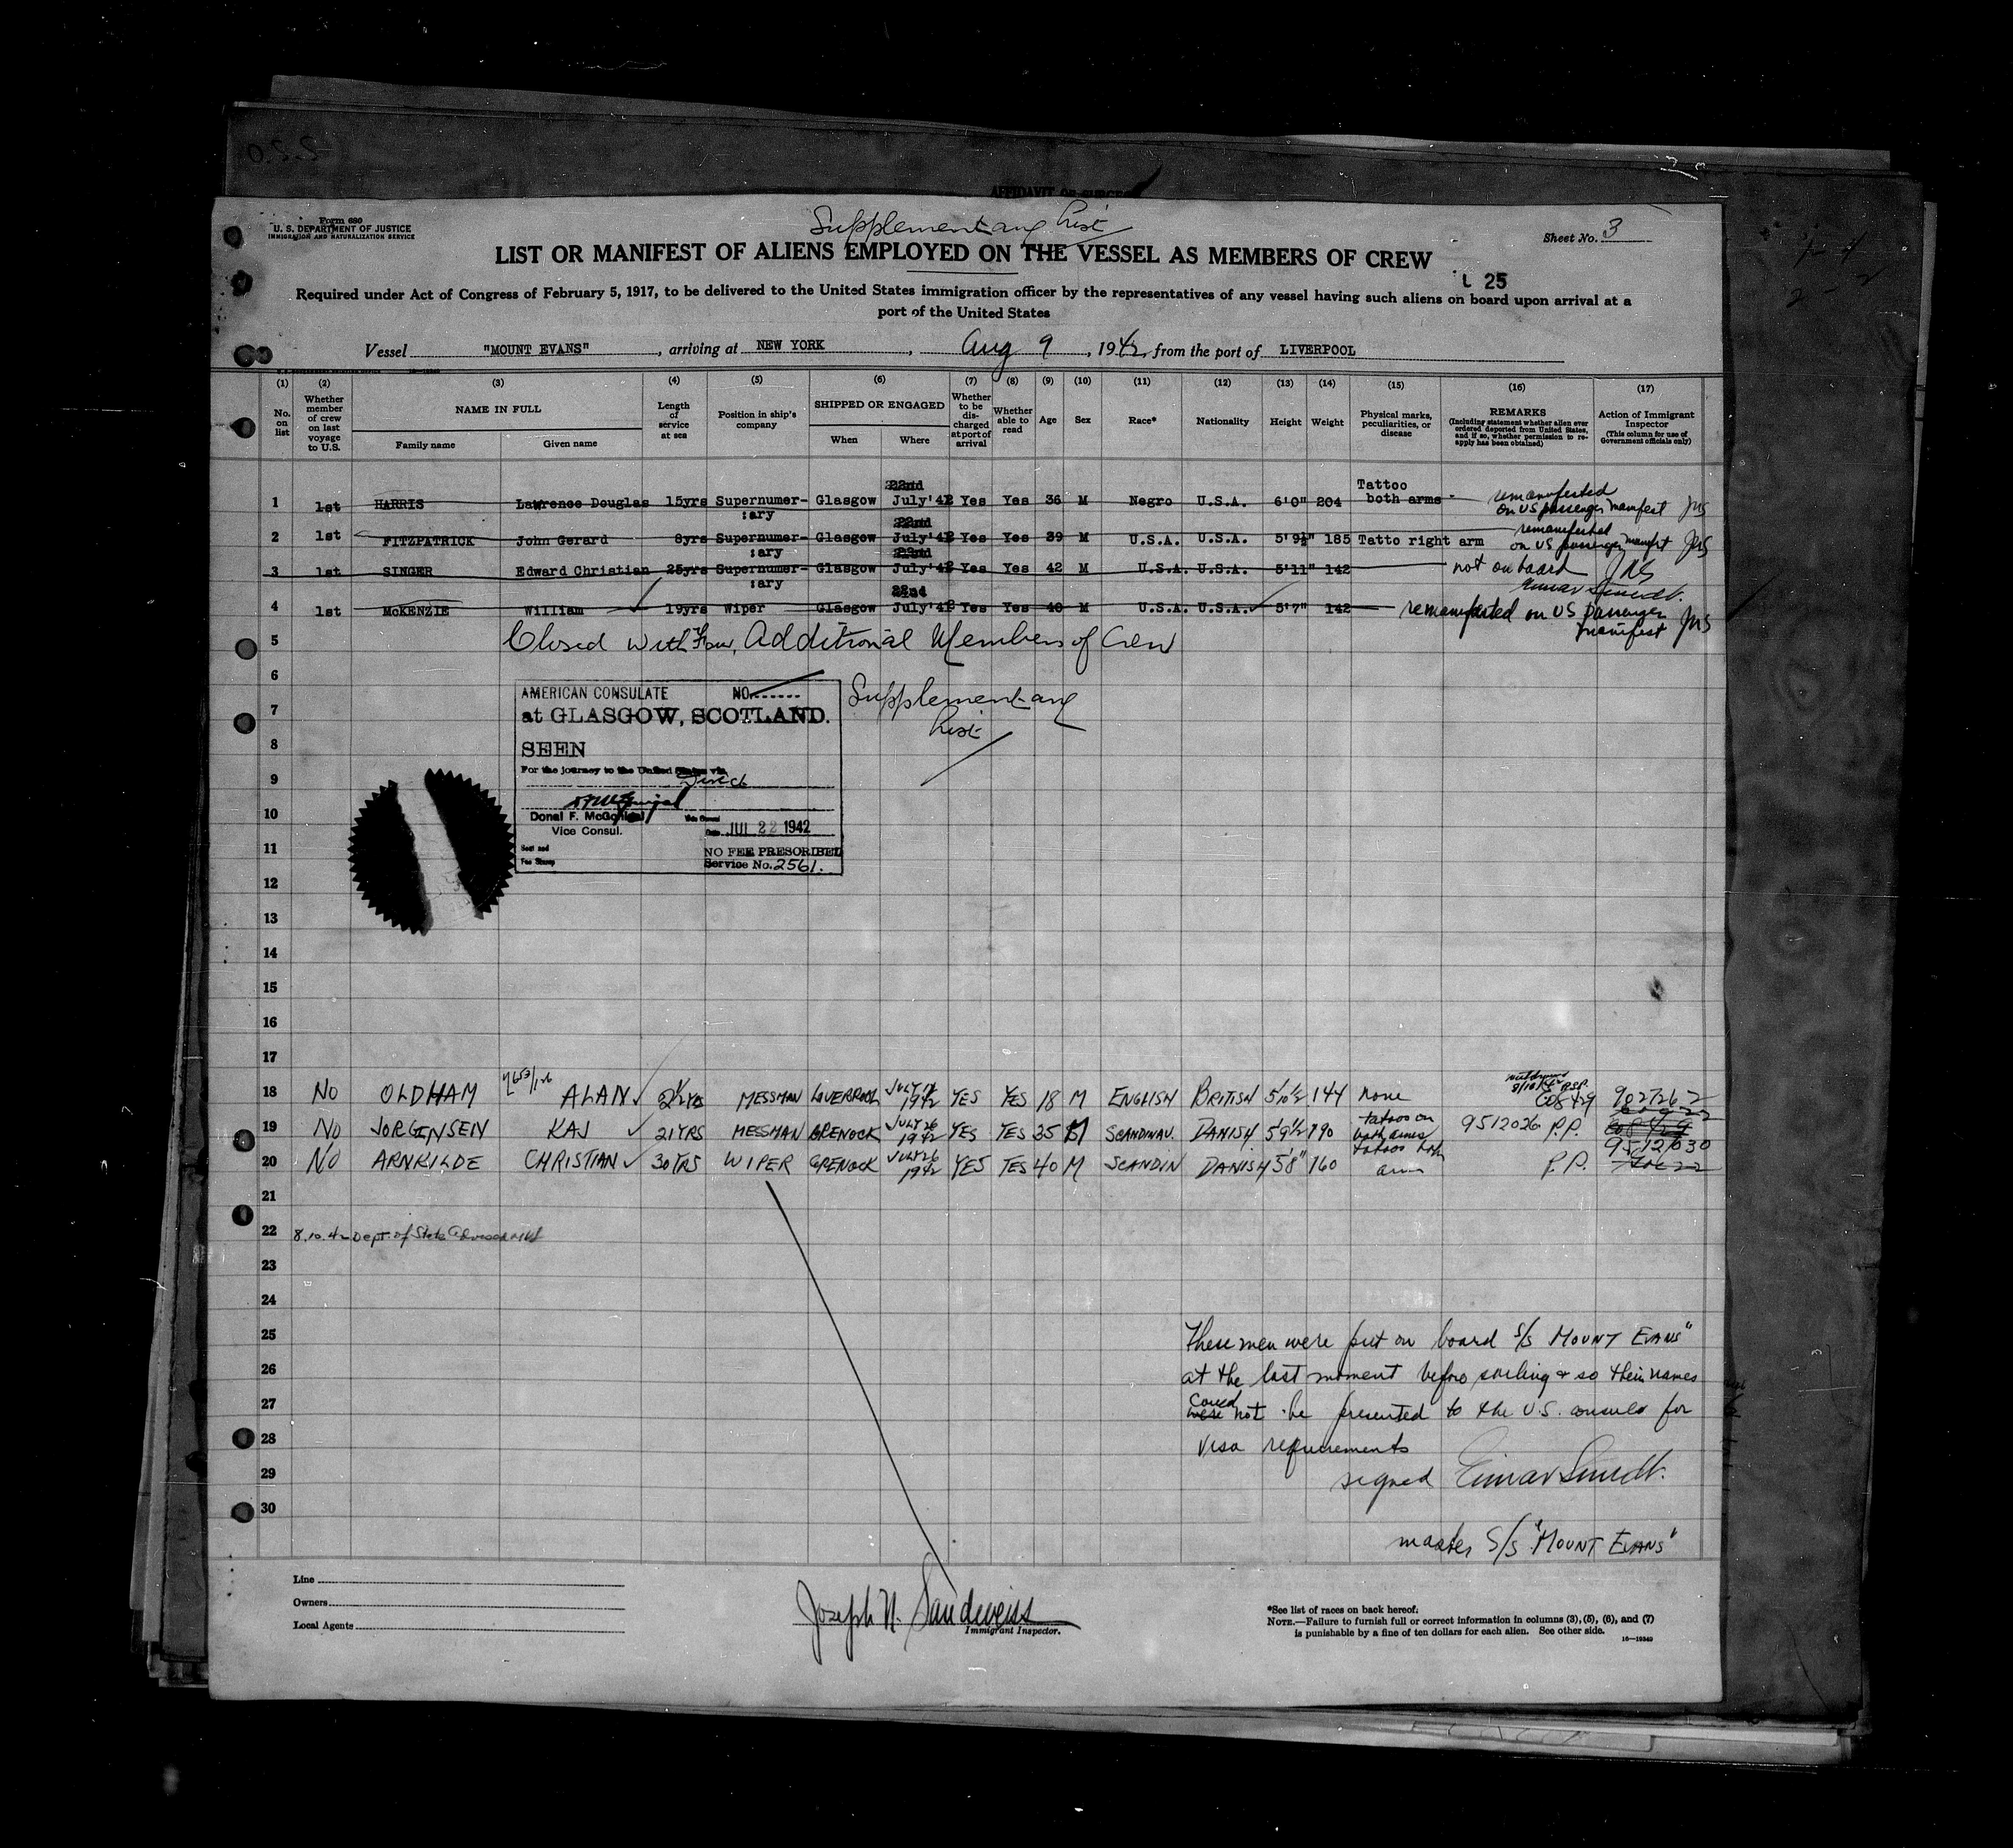 AFFIDAVIT OF SURGE
Form 680
U. S. DEPARTMENT OF JUSTICE
IMMIGRATION AND NATURALIZATION SERVICE
Supplementary List
Sheet No. 3
LIST OR MANIFEST OF ALIENS EMPLOYED ON THE VESSEL AS MEMBERS OF CREW
25
Required under Act of Congress of February 5, 1917, to be delivered to the United States immigration officer by the representatives of any vessel having such aliens on board upon arrival at a
port of the United States
Vessel "MOUNT EVANS", arriving at NEW YORK, Aug 9, 1942, from the port of LIVERPOOL
(1) (2) (3) (4) (5) (6) (7) (8) (9) (10) (11) (12) (13) (14) (15) (16) (17)
No. on list
Whether member of crew on last voyage to U.S.
NAME IN FULL
Family name Given name
Length of service at sea
Position in ship's company
SHIPPED OR ENGAGED
When Where
Whether to be discharged at port of arrival
Whether able to read
Age
Sex
Race*
Nationality
Height
Weight
Physical marks, peculiarities, or disease
REMARKS
(Including statement whether alien ever ordered deported from United States, and if so, whether permission to re-apply has been obtained)
Action of Immigrant Inspector
(This column for use of Government officials only)
1 1st HARRIS Lawrence Douglas 15yrs Supernumer-:ary Glasgow 22nd July'42 Yes Yes 36 M Negro U.S.A. 6'0" 204 Tattoo both arms - remanifested on US passenger manifest JNS
2 1st FITZPATRICK John Gerard 8yrs Supernumer-:ary Glasgow 22nd July'42 Yes Yes 39 M U.S.A. U.S.A. 5'9½" 185 Tatto right arm remanifested on US passenger manifest JNS
3 1st SINGER Edward Christian 25yrs Supernumer-:ary Glasgow 22nd July'42 Yes Yes 42 M U.S.A. U.S.A. 5'11" 142 not on board JNS
4 1st McKENZIE William 19yrs Wiper Glasgow 22nd July'42 Yes Yes 40 M U.S.A. U.S.A. 5'7" 142 remanifested on US passenger manifest JNS
5 Closed with Four, Additional Members of Crew
6
AMERICAN CONSULATE NO.
Supplementary
7
at GLASGOW, SCOTLAND.
List
8
SEEN
For the journey to the United States via
9
Direct
10
Donal F. McGonigal
Vice Consul.
Date JUL 22 1942
11
Seal and
Fee Stamp
NO FEE PRESCRIBED
Service No. 2561.
12
13
14
15
16
17
18 No OLDHAM ALAN 2½ YRS MESSMAN LIVERPOOL JULY 17 1942 YES YES 18 M ENGLISH BRITISH 5'10½ 144 none 902726 2
19 No JORGENSEN KAJ 21 YRS MESSMAN GRENOCK JULY 26 1942 YES YES 35 M SCANDINAV. DANISH 5'9½ 190 tatoos on both arms 9512026 P.P.
20 No ARNKILDE CHRISTIAN 30 YRS WIPER GRENOCK JULY 26 1942 YES YES 40 M SCANDIN DANISH 5'8" 160 tatoos both arm P.P. 9512030
21
22 8.10.42 Dept. of State
23
24
25 These men were put on board S/S MOUNT EVANS"
26 at the last moment before sailing & so their names
27 were could not be presented to the U.S. consuls for
28 visa requirements
29 signed Einar Smedt.
30
master S/S "MOUNT EVANS"
Line
Owners
Local Agents
Joseph N. Sandweiss
Immigrant Inspector.
*See list of races on back hereof.
NOTE.—Failure to furnish full or correct information in columns (3), (5), (6), and (7)
is punishable by a fine of ten dollars for each alien. See other side.
16—19349